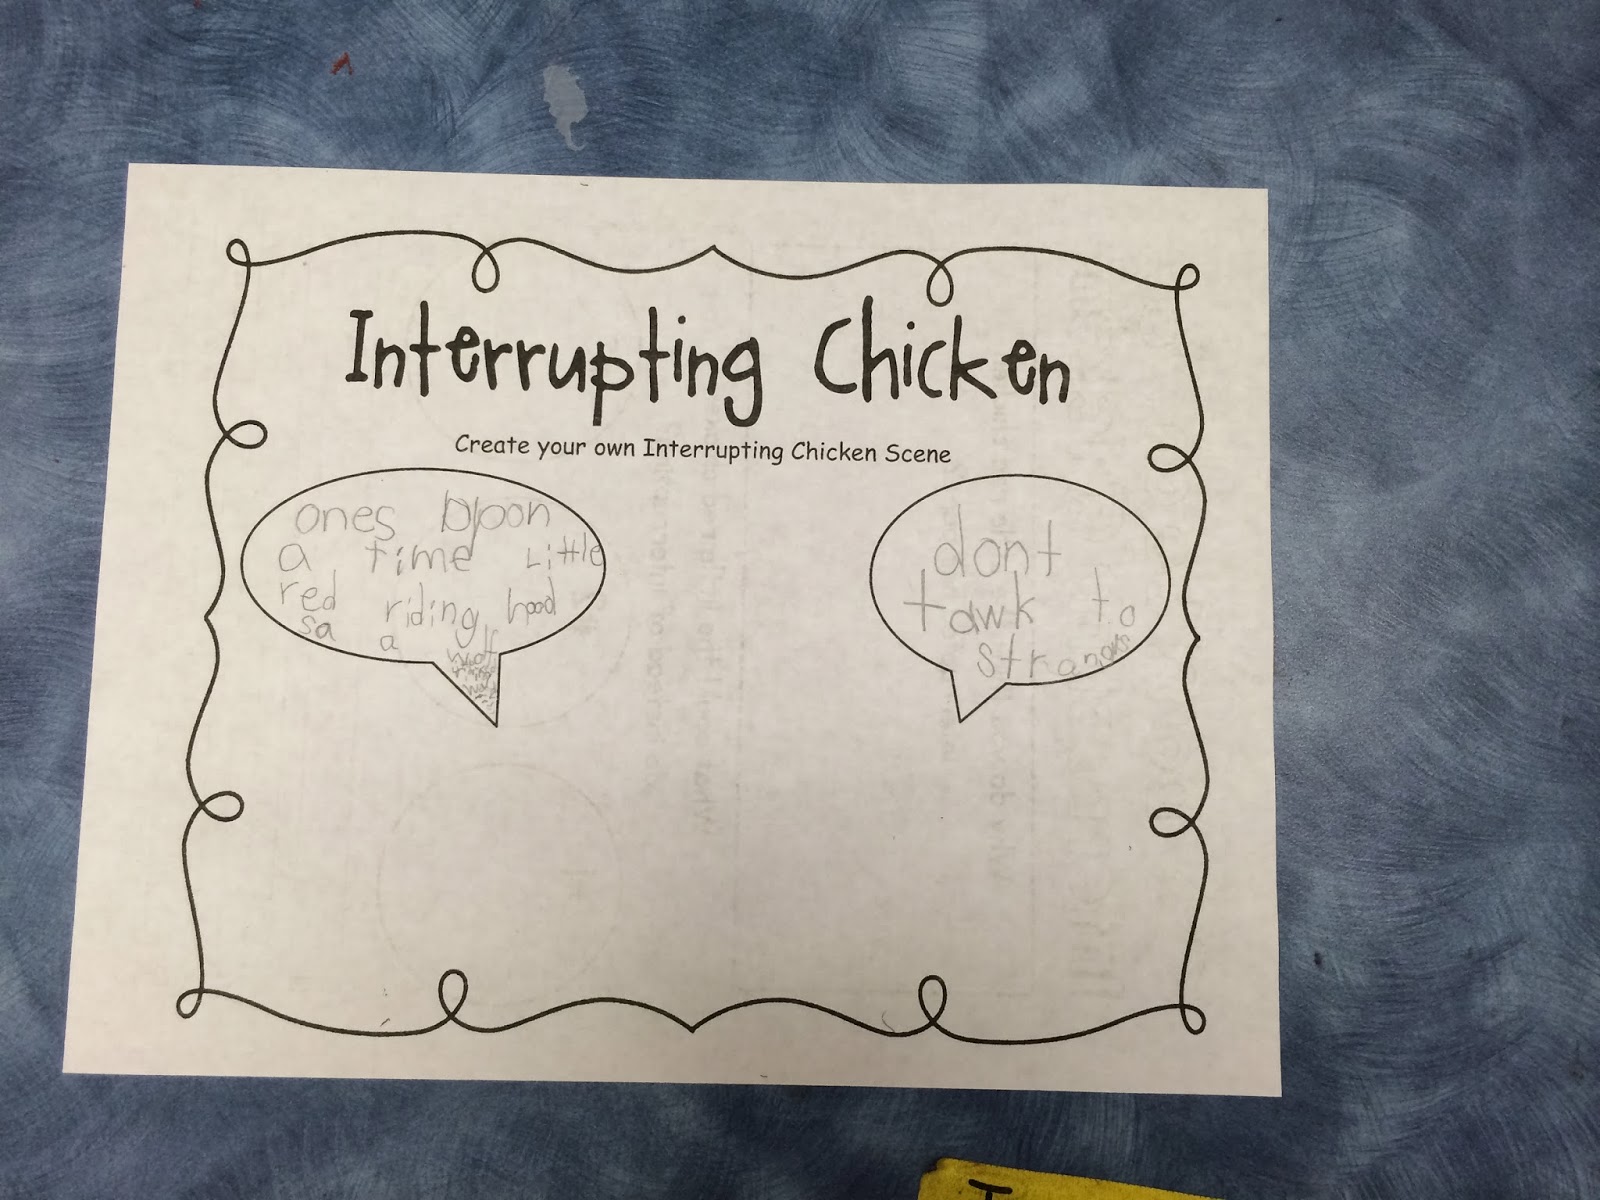 Interrupting Chicken
Create your own Interrupting Chicken Scene
ones upon
a time Little
red riding hood
sa a wolf
dont
tawk to
strangrs